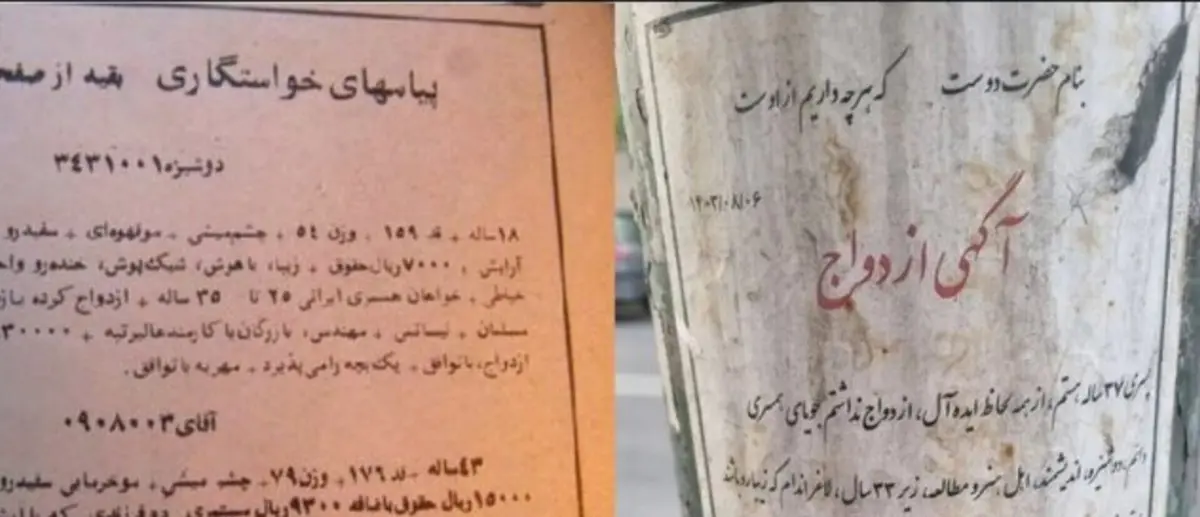 پیامهای خواستگاری بقیه از صفح
دوشیزه ۳۴۳۱۰۰۱
۱۸ ساله + قد ۱۵۹ . وزن ۵۴ + چشم‌میشی . موقهوه‌ای . سفیدرو
آرایش . ۷۰۰۰ ریال حقوق . زیبا، باهوش، شیک‌پوش، خنده‌رو
خیاطی . خواهان همسری ایرانی ۲۵ تا ۳۵ ساله + ازدواج کرده
مسلمان . لیسانس . مهندس، بازرگان یا کارمند عالیرتبه + ۳۰۰۰۰
ازدواج، با توافق . یک بچه را می‌پذیرد . مهریه با توافق .
آقای ۰۹۰۸۰۰۳
۴۳ ساله - قد ۱۷۶ . وزن ۷۹ . چشم میشی . موخرمایی سفیدرو
۱۵۰۰۰ ریال حقوق باضافه ۹۳۰۰ ریال مستمری
بنام حضرت دوست که هر چه داریم از اوست
۱۴۰۳/۰۸/۰۶
آگهی ازدواج
پسری ۳۷ ساله هستم، از همه لحاظ ایده‌آل، ازدواج نداشتم جویای همسری
دائم، دوشیزه، اندیشمند، اهل هنر و مطالعه، زیر ۳۳ سال، لاغر اندام که زیبا باشد